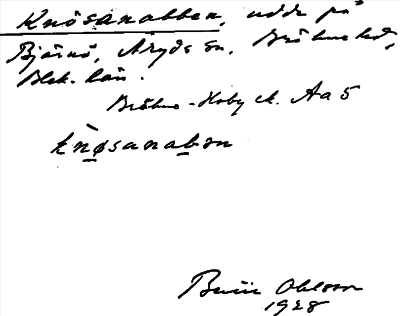 Knösanabben, udde på
Bjärnö, Åryds sn, Bräkne hd,
Blek. län.
Bräkne-Hoby ek. Aa 5
knøsanabən
Ohlsson
1928